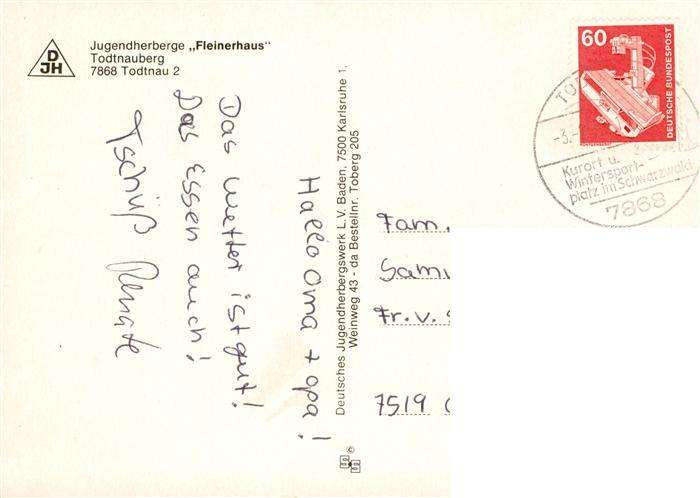 DJH
Jugendherberge „Fleinerhaus"
Todtnauberg
7868 Todtnau 2
Hallo Oma + opa!
Das Wetter ist gut!
Das Essen auch!
Tschüß Renate
Deutsches Jugendherbergswerk L.V. Baden, 7500 Karlsruhe 1,
Weinweg 43 - da Bestellnr. Toberg 205
©
60
DEUTSCHE BUNDESPOST
Kurort u.
Wintersport-
platz im Schwarzwald
7868
Fam.
Fr. v.
7519